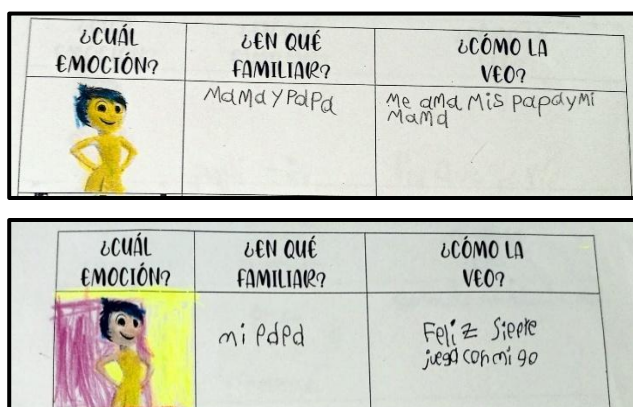 ¿CUÁL
EMOCIÓN?
¿EN QUÉ
FAMILIAR?
¿CÓMO LA
VEO?
MaMa y PaPa
Me ama Mis papa y Mi
MaMa
¿CUÁL
EMOCIÓN?
¿EN QUÉ
FAMILIAR?
¿CÓMO LA
VEO?
mi PaPa
Feliz Siepre
juega con mi go